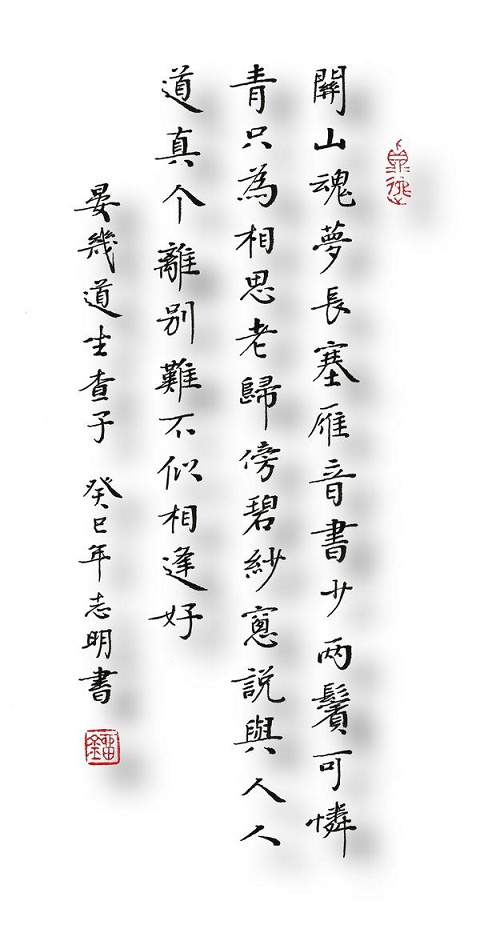 關山魂夢長塞雁音書少兩鬢可憐
青只為相思老歸傍碧紗窻說與人人
道真个離別難不似相逢好
晏幾道生查子 癸巳年志明書